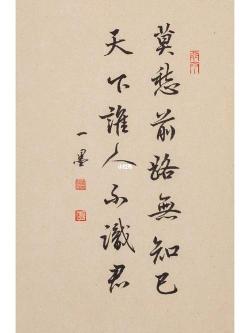 莫愁前路無知己
天下誰人不識君
一墨